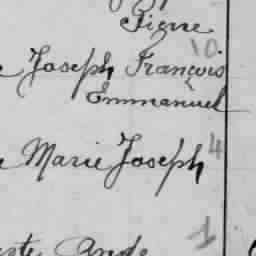 Pierre
10
Joseph François
Emmanuel
Marie Joseph 4
1